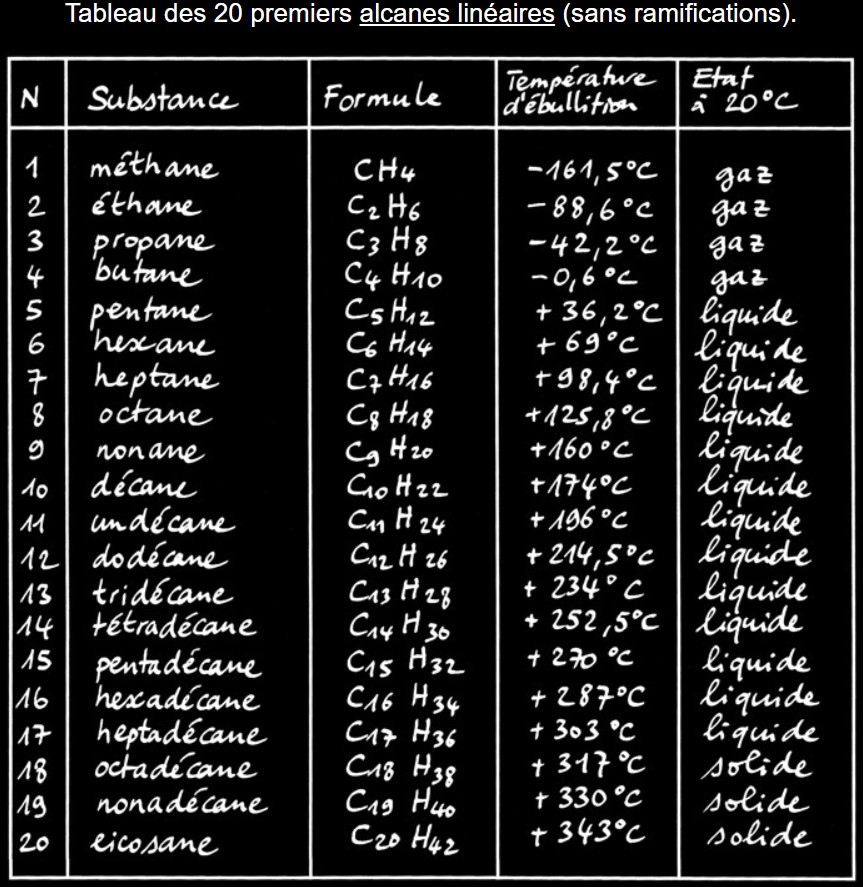 Tableau des 20 premiers alcanes linéaires (sans ramifications).
N Substance Formule Température d'ébullition Etat à 20°C
1 méthane CH4 -161,5°C gaz
2 éthane C2H6 -88,6°C gaz
3 propane C3H8 -42,2°C gaz
4 butane C4H10 -0,6°C gaz
5 pentane C5H12 +36,2°C liquide
6 hexane C6H14 +69°C liquide
7 heptane C7H16 +98,4°C liquide
8 octane C8H18 +125,8°C liquide
9 nonane C9H20 +160°C liquide
10 décane C10H22 +174°C liquide
11 undécane C11H24 +196°C liquide
12 dodécane C12H26 +214,5°C liquide
13 tridécane C13H28 +234°C liquide
14 tétradécane C14H30 +252,5°C liquide
15 pentadécane C15H32 +270°C liquide
16 hexadécane C16H34 +287°C liquide
17 heptadécane C17H36 +303°C liquide
18 octadécane C18H38 +317°C solide
19 nonadécane C19H40 +330°C solide
20 eicosane C20H42 +343°C solide